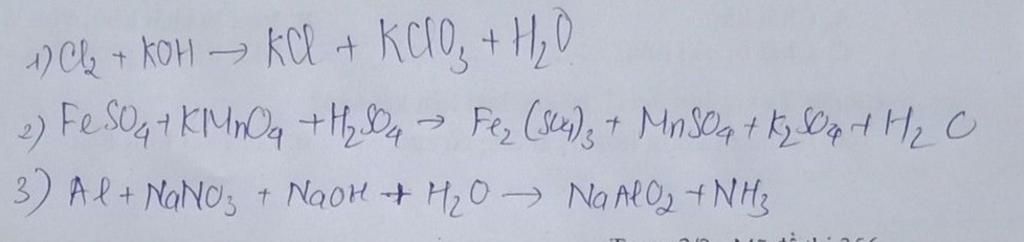 1) Cl₂ + KOH → KCl + KClO₃ + H₂O
2) FeSO₄ + KMnO₄ + H₂SO₄ → Fe₂(SO₄)₃ + MnSO₄ + K₂SO₄ + H₂O
3) Al + NaNO₃ + NaOH + H₂O → NaAlO₂ + NH₃